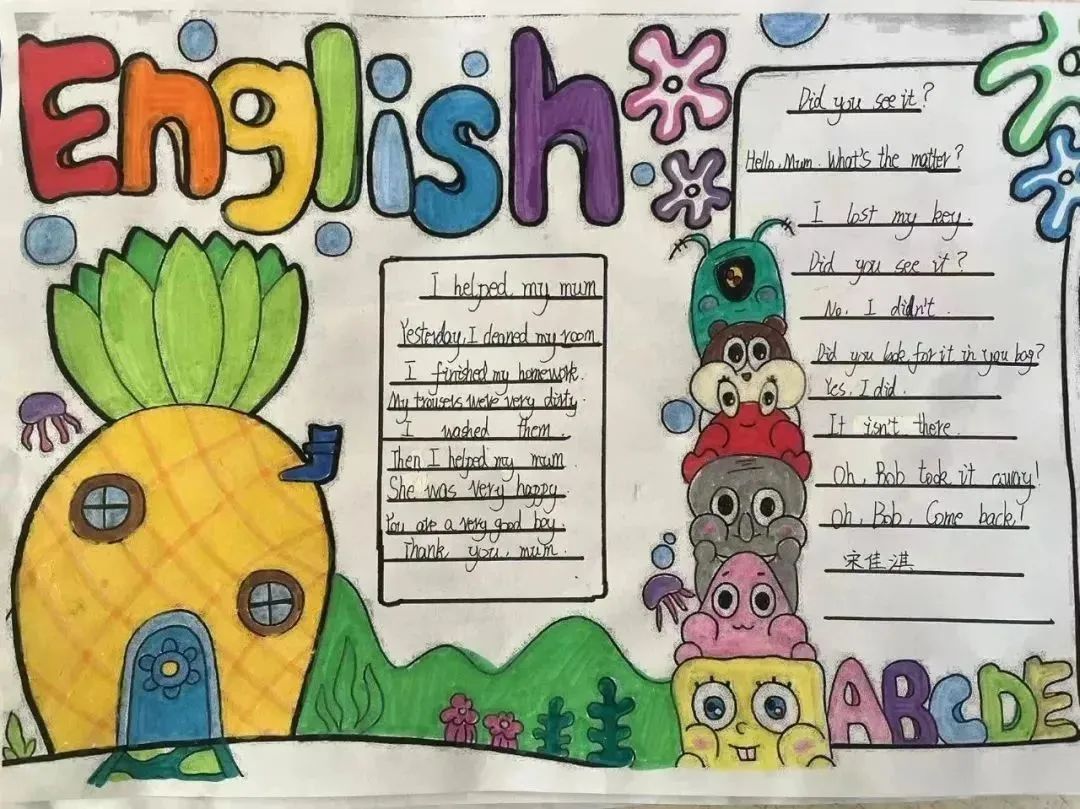 English
I helped my mum
Yesterday, I cleaned my room.
I finished my homework.
My trousers were very dirty.
I washed them.
Then I helped my mum.
She was very happy.
You are a very good boy.
Thank you, mum.
Did you see it?
Hello, Mum. What's the matter?
I lost my key.
Did you see it?
No, I didn't.
Did you look for it in you bag?
Yes, I did.
It isn't there.
Oh, Bob took it away!
Oh, Bob, Come back!
宋佳淇
ABCDE